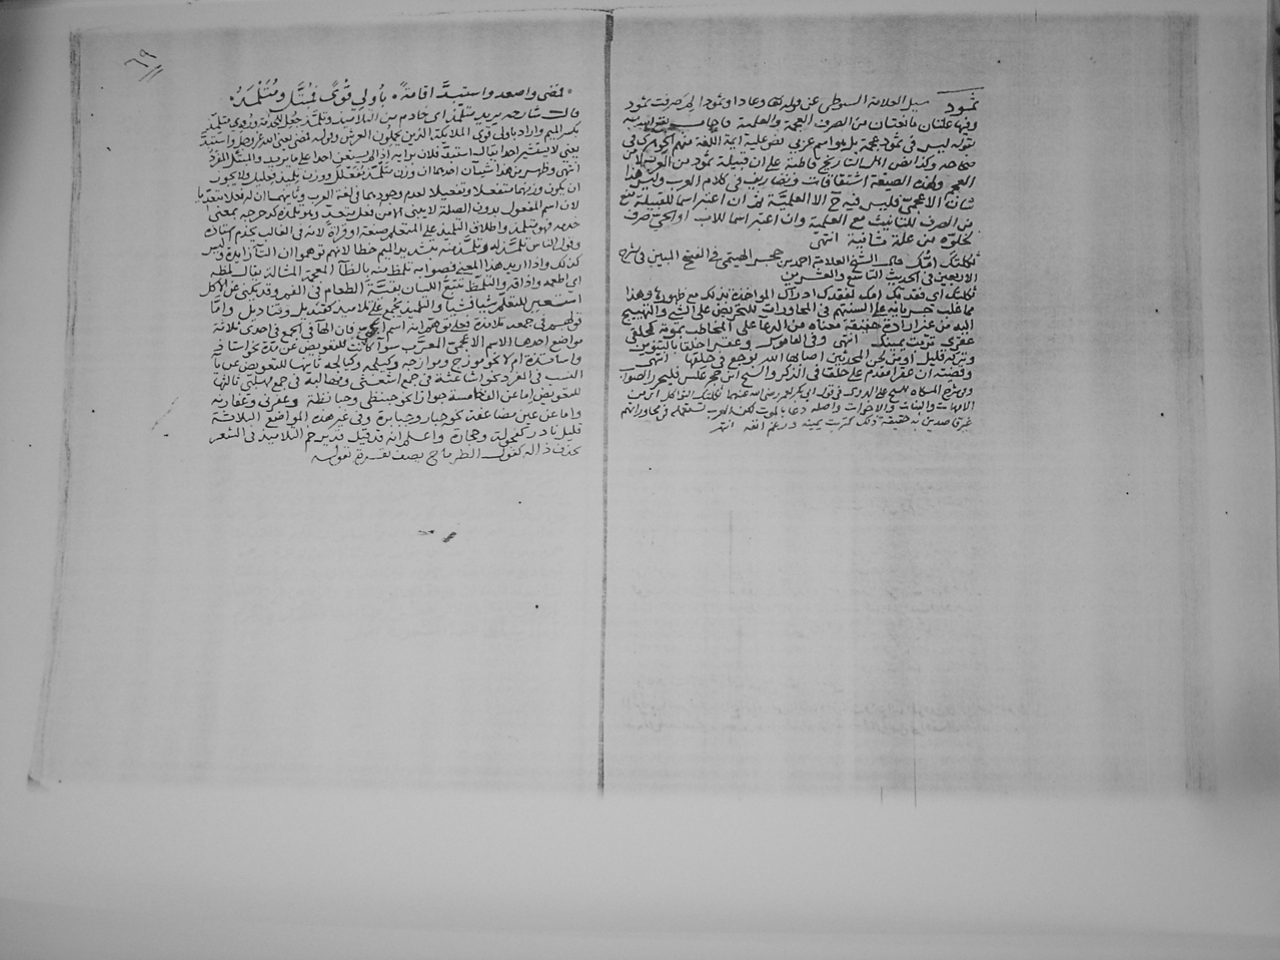 ثمود سيل العلامة السيوطي عن قوله تعالى وعادا وثمودا لم صرفت ثمود
وفيها علتان مانعتان من الصرف العجمة والعلمية فاجاب
بقوله ليس في ثمود عجمة بل هو اسم عربي نص عليه ايمة اللغة منهم الجوهري في
صحاحه وكذا نص اهل التاريخ قاطبة على ان قبيلة ثمود من العرب لا من
العجم ولهذه الصيغة اشتقاقات وتصاريف في كلام العرب وليس هذا
شان الاعجمي فليس فيه ح الا العلمية فان اعتبر اسما للقبيلة منع
من الصرف للتانيث مع العلمية وان اعتبر اسما للاب او الحي صرف
لخلوه من علة ثانية انتهى
ثكلتك امك قال الشيخ العلامة احمد بن حجر الهيتمي في الفتح المبين في شرح
الاربعين في الحديث التاسع والعشرين
ثكلتك اي فقدتك امك لفقدك ادراك المواخذة بذلك مع ظهورها وهذا
مما غلب جريانه على السنتهم في المحاورات للتحريض على الشي والتهييج
اليه من غير ارادة حقيقة معناه من الدعا على المخاطب بموته كحلقى
عقرى تربت يمينك انتهى وفي القاموس وعقرا حلقا بالتنوين
وتركه قليل او من لحن المحدثين اصابها الله بوجع في حلقها انتهى
وقضيته ان عقرا مقدم على حلقا في الذكر والشيخ ابن حجر عكس فليحرر الصواب
الامهات والبنات والاخوات واصله دعا بالموت لكن العرب تستعمله في محاوراتهم
غير قاصدين به حقيقة ذلك كتربت يمينه ورغم انفه انتهى
٦٩
فمضى واصعد واستبد اقامة باولي قوى فمبتل ومتلمذ
قال شارحه يريد متلمذ اي خادم من التلاميذ وتلمذ جعل للخدمة وروي متلمذ
بكسر الميم واراد باولي قوى الملايكة الذين يحملون العرش وقوله فمضى
يعني لا يستشير احدا يقال استبد فلان برايه اذا لم يستعن احدا على ما يريد والمبتل المفرد
انتهى وظهر من هذا شيئان احدهما ان وزن متلمذ مفعلل ووزن تلميذ فعليل ولا يجوز
ان يكون وزنهما متفعلا وتفعيلا لعدم وجودهما في لغة العرب وثانيهما ان له فعلا متعديا
لان اسم المفعول بدون الصلة لا يبنى الا من فعل متعد وهو تلمذه كدحرجه بمعنى
خدمه فهو متلمذ واطلاق التلميذ على المتعلم صنعة او قراءة لانه في الغالب يخدم استاذه
وقول الناس تلمذ له وتلمذ منه بتشديد الميم خطا لانهم توهموا ان التا زايدة وليس
كذلك واذا اريد هذا المعنى فصوابه تلمظ منه بالظا المعجمة المشالة يقال لمظه
اي اطعمه واذاقه والتلمظ تتبع اللسان بقية الطعام في الفم وقد يكنى عن الاكل
استعير للتعلم شيا فشيا والتلميذ يجمع على تلاميذ كقنديل وقناديل واما
قولهم في جمعه تلامذة فعلى توهم انه اسم اعجمي فان الها في الجمع في احدى ثلاثة
مواضع احدها الاسم الاعجمي المعرب سوا كانت للتعويض عن مدة نحو استاذ
واساتذة ام لا نحو موزج وموازجه وكيلجه وكيالجه ثانيها للتعويض عن يا
النسب في المفرد نحو اشاعثة في جمع اشعثي ومهالبة في جمع مهلبي ثالثها
للتعويض اما عن الف خامسة جوازا نحو حبنطى وحبانطة وعفرنى وعفارنه
واما عن عين مضاعفة نحو جبار وجبابرة وفي غير هذه المواضع الثلاثة
قليل نادر كفحولة وحجارة واعلم انه قد قيل قد يرخم التلاميذ في الشعر
بحذف ذاله كقول الطرماح يصف بقرة بقوله